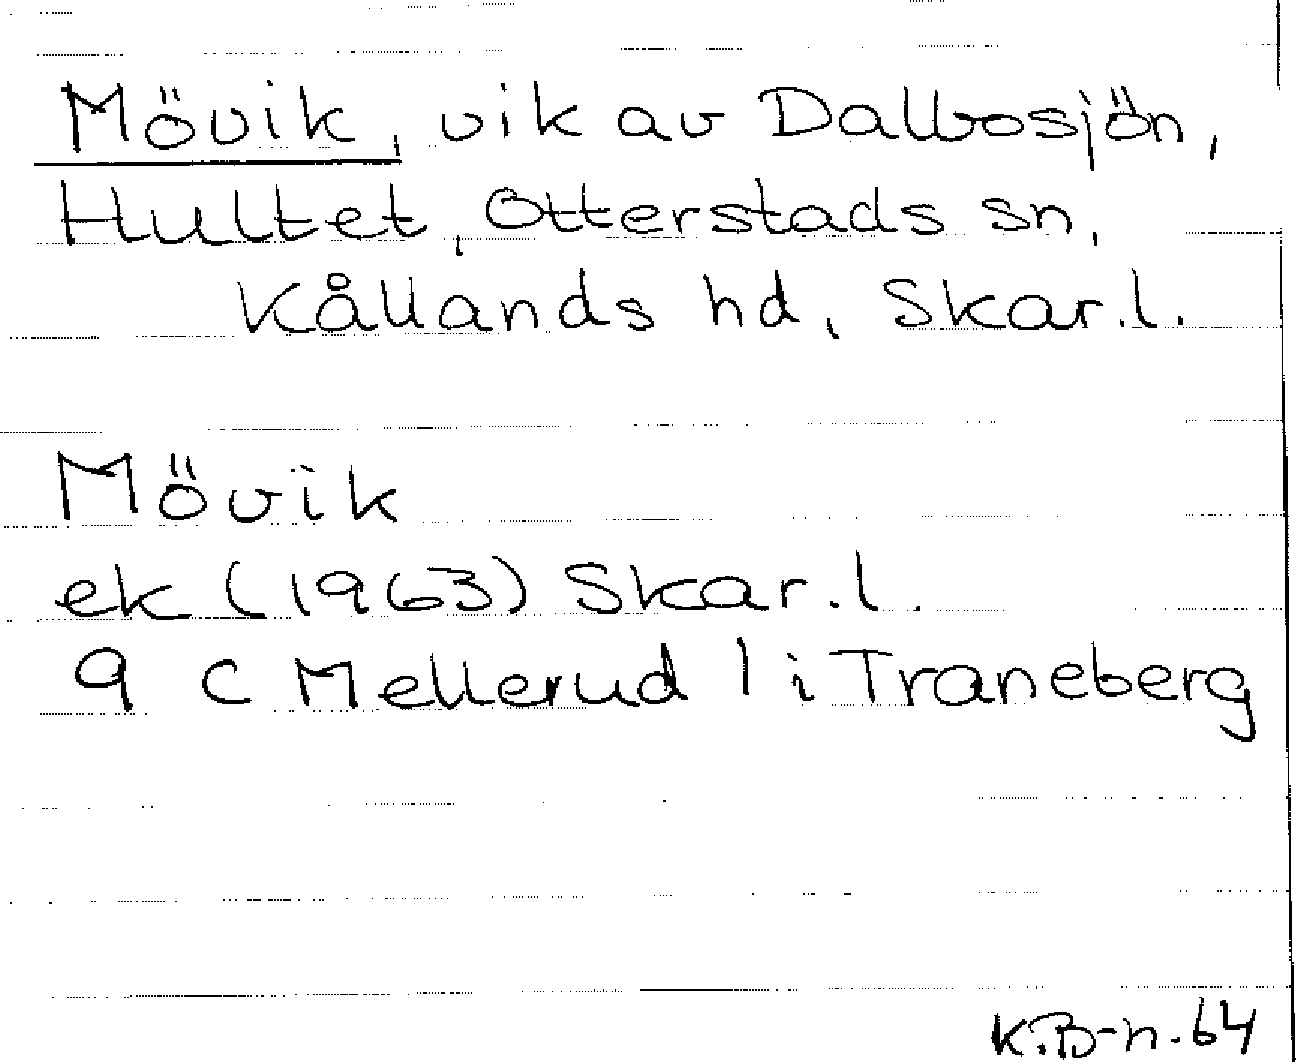 Mövik, vik av Dalbosjön,
Hultet, Otterstads sn,
Kållands hd, Skar.l.
Mövik
ek (1963) Skar.l.
9 C Mellerud l i Traneberg
K.B-n.64